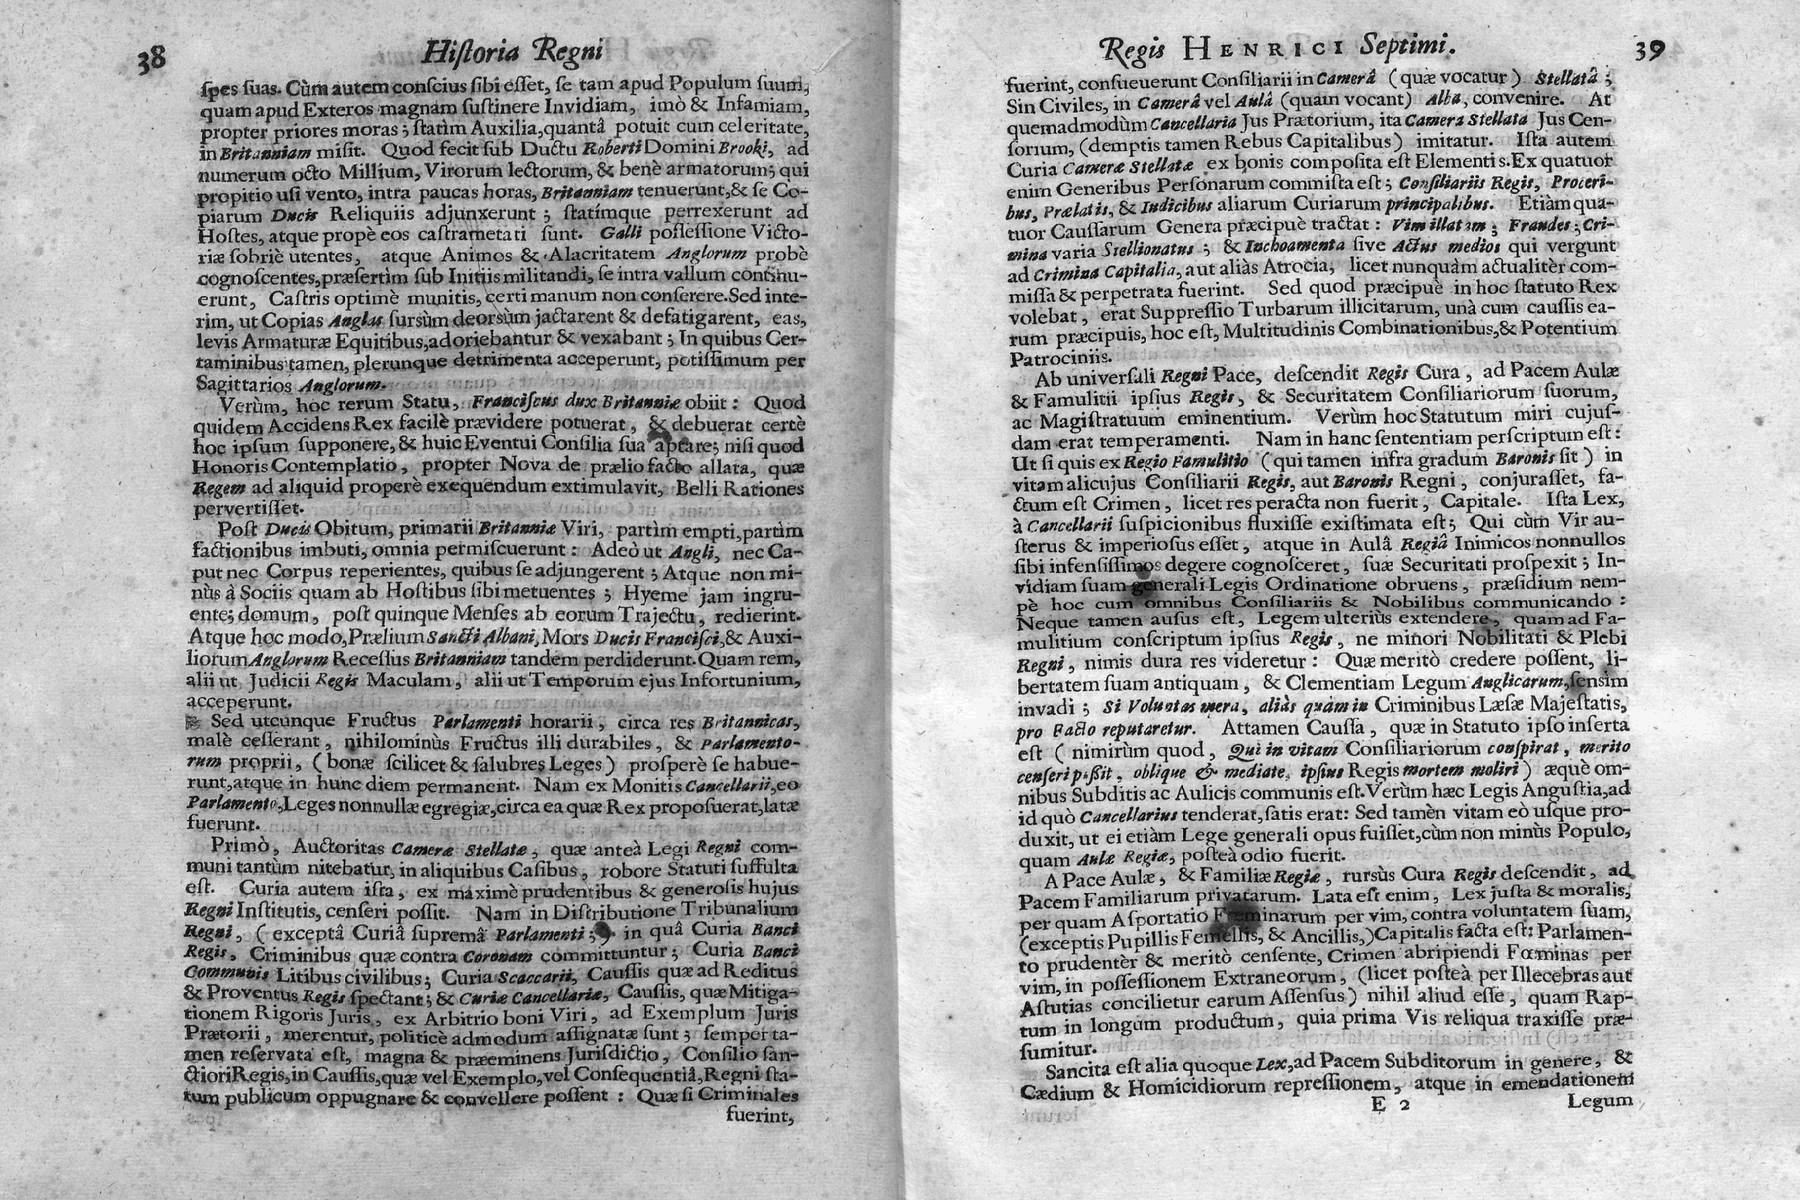 38 Hiſtoria Regni
ſpes ſuas. Cùm autem conſcius ſibi eſſet, ſe tam apud Populum ſuum,
quam apud Exteros magnam ſuſtinere Invidiam, imò & Infamiam,
propter priores moras; ſtatìm Auxilia, quantâ potuit cum celeritate,
in Britanniam miſit. Quod fecit ſub Ductu Roberti Domini Brooki, ad
numerum octo Millium, Virorum lectorum, & benè armatorum; qui
propitio uſi vento, intra paucas horas, Britanniam tenuerunt, & ſe Co-
piarum Ducis Reliquiis adjunxerunt; ſtatímque perrexerunt ad
Hoſtes, atque propè eos caſtrametati ſunt. Galli poſſeſſione Victo-
riæ ſobriè utentes, atque Animos & Alacritatem Anglorum probè
cognoſcentes, præſertìm ſub Initiis militandi, ſe intra vallum continu-
erunt, Caſtris optimè munitis, certi manum non conſerere. Sed inte-
rim, ut Copias Anglas ſursùm deorsùm jactarent & defatigarent, eas,
levis Armaturæ Equitibus, adoriebantur & vexabant; In quibus Cer-
taminibus tamen, plerunque detrimenta acceperunt, potiſſimum per
Sagittarios Anglorum.
Verùm, hoc rerum Statu, Franciſcus dux Britanniæ obiit: Quod
quidem Accidens Rex facilè prævidere potuerat, & debuerat certè
hoc ipſum ſupponere, & huic Eventui Conſilia ſua aptare; niſi quod
Honoris Contemplatio, propter Nova de prælio facto allata, quæ
Regem ad aliquid properè exequendum extimulavit, Belli Rationes
pervertiſſet.
Poſt Ducis Obitum, primarii Britanniæ Viri, partìm empti, partìm
factionibus imbuti, omnia permiſcuerunt: Adeò ut Angli, nec Ca-
put nec Corpus reperientes, quibus ſe adjungerent; Atque non mi-
nùs à Sociis quam ab Hoſtibus ſibi metuentes; Hyeme jam ingru-
ente; domum, poſt quinque Menſes ab eorum Trajectu, redierint.
Atque hoc modo, Prælium Sancti Albani, Mors Ducis Franciſci, & Auxi-
liorum Anglorum Receſſus Britanniam tandem perdiderunt. Quam rem,
alii ut Judicii Regis Maculam, alii ut Temporum ejus Infortunium,
acceperunt.
Sed utcunque Fructus Parlamenti horarii, circa res Britannicas,
malè ceſſerant, nihilominùs Fructus illi durabiles, & Parlamento-
rum proprii, (bonæ ſcilicet & ſalubres Leges) proſperè ſe habue-
runt, atque in hunc diem permanent. Nam ex Monitis Cancellarii, eo
Parlamento, Leges nonnullæ egregiæ, circa ea quæ Rex propoſuerat, latæ
fuerunt.
Primò, Auctoritas Cameræ Stellatæ, quæ anteà Legi Regni com-
muni tantùm nitebatur, in aliquibus Caſibus, robore Statuti ſuffulta
eſt. Curia autem iſta, ex máximè prudentibus & generoſis hujus
Regni Inſtitutis, cenſeri poſſit. Nam in Diſtributione Tribunalium
Regni, (exceptâ Curiâ ſupremâ Parlamenti;) in quâ Curia Banci
Regis, Criminibus quæ contra Coronam committuntur; Curia Banci
Communis Litibus civilibus; Curia Scaccarii, Cauſſis quæ ad Reditus
& Proventus Regis ſpectant; & Curiæ Cancellariæ, Cauſſis, quæ Mitiga-
tionem Rigoris Juris, ex Arbitrio boni Viri, ad Exemplum Juris
Prætorii, merentur, politicè admodum aſſignatæ ſunt; ſemper ta-
men reſervata eſt, magna & præeminens Jurisdictio, Conſilio ſan-
ctiori Regis, in Cauſſis, quæ vel Exemplo, vel Conſequentiâ, Regni ſta-
tum publicum oppugnare & convellere poſſent: Quæ ſi Criminales
fuerint,
Regis HENRICI Septimi. 39
fuerint, conſueuerunt Conſiliarii in Camerâ (quæ vocatur) Stellatâ;
Sin Civiles, in Camerâ vel Aulâ (quam vocant) Alba, convenire. At
quemadmodùm Cancellaria Jus Prætorium, ita Camera Stellata Jus Cen-
ſorium, (demptis tamen Rebus Capitalibus) imitatur. Iſta autem
Curia Cameræ Stellatæ ex bonis compoſita eſt Elementis. Ex quatuor
enim Generibus Perſonarum commiſta eſt; Conſiliariis Regis, Proceri-
bus, Prælatis, & Iudicibus aliarum Curiarum principalibus. Etiàm qua-
tuor Cauſſarum Genera præcipuè tractat: Vim illatam; Fraudes; Cri-
mina varia Stellionatus; & Inchoamenta ſive Actus medios qui vergunt
ad Crimina Capitalia, aut aliàs Atrocia, licet nunquàm actualitèr com-
miſſa & perpetrata fuerint. Sed quod præcipuè in hoc ſtatuto Rex
volebat, erat Suppreſſio Turbarum illicitarum, unà cum cauſſis ea-
rum præcipuis, hoc eſt, Multitudinis Combinationibus, & Potentium
Patrociniis.
Ab univerſali Regni Pace, deſcendit Regis Cura, ad Pacem Aulæ
& Famulitii ipſius Regis, & Securitatem Conſiliariorum ſuorum,
ac Magiſtratuum eminentium. Verùm hoc Statutum miri cujuſ-
dam erat temperamenti. Nam in hanc ſententiam perſcriptum eſt:
Ut ſi quis ex Regio Famulitio (qui tamen infra gradum Baronis ſit) in
vitam alicujus Conſiliarii Regis, aut Baronis Regni, conjuraſſet, fa-
ctum eſt Crimen, licet res peracta non fuerit, Capitale. Iſta Lex,
à Cancellarii ſuſpicionibus fluxiſſe exiſtimata eſt; Qui cùm Vir au-
ſterus & imperioſus eſſet, atque in Aulâ Regiâ Inimicos nonnullos
ſibi infenſiſſimos degere cognoſceret, ſuæ Securitati proſpexit; In-
vidiam ſuam generali Legis Ordinatione obruens, præſidium nem-
pè hoc cum omnibus Conſiliariis & Nobilibus communicando:
Neque tamen auſus eſt, Legem ulteriùs extendere, quam ad Fa-
mulitium conſcriptum ipſius Regis, ne minori Nobilitati & Plebi
Regni, nimis dura res videretur: Quæ meritò credere poſſent, li-
bertatem ſuam antiquam, & Clementiam Legum Anglicarum, ſensìm
invadi; Si Voluntas mera, aliàs quàm in Criminibus Læſæ Majeſtatis,
pro Facto reputaretur. Attamen Cauſſa, quæ in Statuto ipſo inſerta
eſt (nimirùm quod, Qui in vitam Conſiliariorum conſpirat, merito
cenſeri poßit, oblique & mediate, ipſius Regis mortem moliri) æquè om-
nibus Subditis ac Aulicis communis eſt. Verùm hæc Legis Anguſtia, ad
id quò Cancellarius tenderat, ſatis erat: Sed tamèn vitam eò uſque pro-
duxit, ut ei etiàm Lege generali opus fuiſſet, cùm non minùs Populo,
quam Aulæ Regiæ, poſteà odio fuerit.
A Pace Aulæ, & Familiæ Regiæ, rursùs Cura Regis deſcendit, ad
Pacem Familiarum privatarum. Lata eſt enim, Lex juſta & moralis,
per quam Aſportatio Fæminarum per vim, contra voluntatem ſuam,
(exceptis Pupillis Femellis, & Ancillis,) Capitalis facta eſt: Parlamen-
to prudentèr & meritò cenſente, Crimen abripiendi Fœminas per
vim, in poſſeſſionem Extraneorum, (licet poſteà per Illecebras aut
Aſtutias concilietur earum Aſſenſus) nihil aliud eſſe, quam Rap-
tum in longum productum, quia prima Vis reliqua traxiſſe præ-
ſumitur.
Sancita eſt alia quoque Lex, ad Pacem Subditorum in genere, &
Cædium & Homicidiorum repreſſionem, atque in emendationem
E 2 Legum